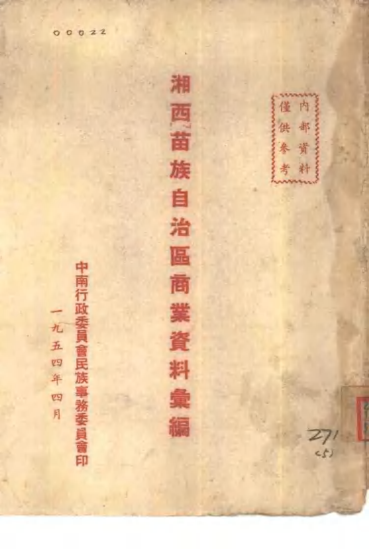 00022
內部資料
僅供參考
湘西苗族自治區商業資料彙編
中南行政委員會民族事務委員會印
一九五四年四月
271
(5)